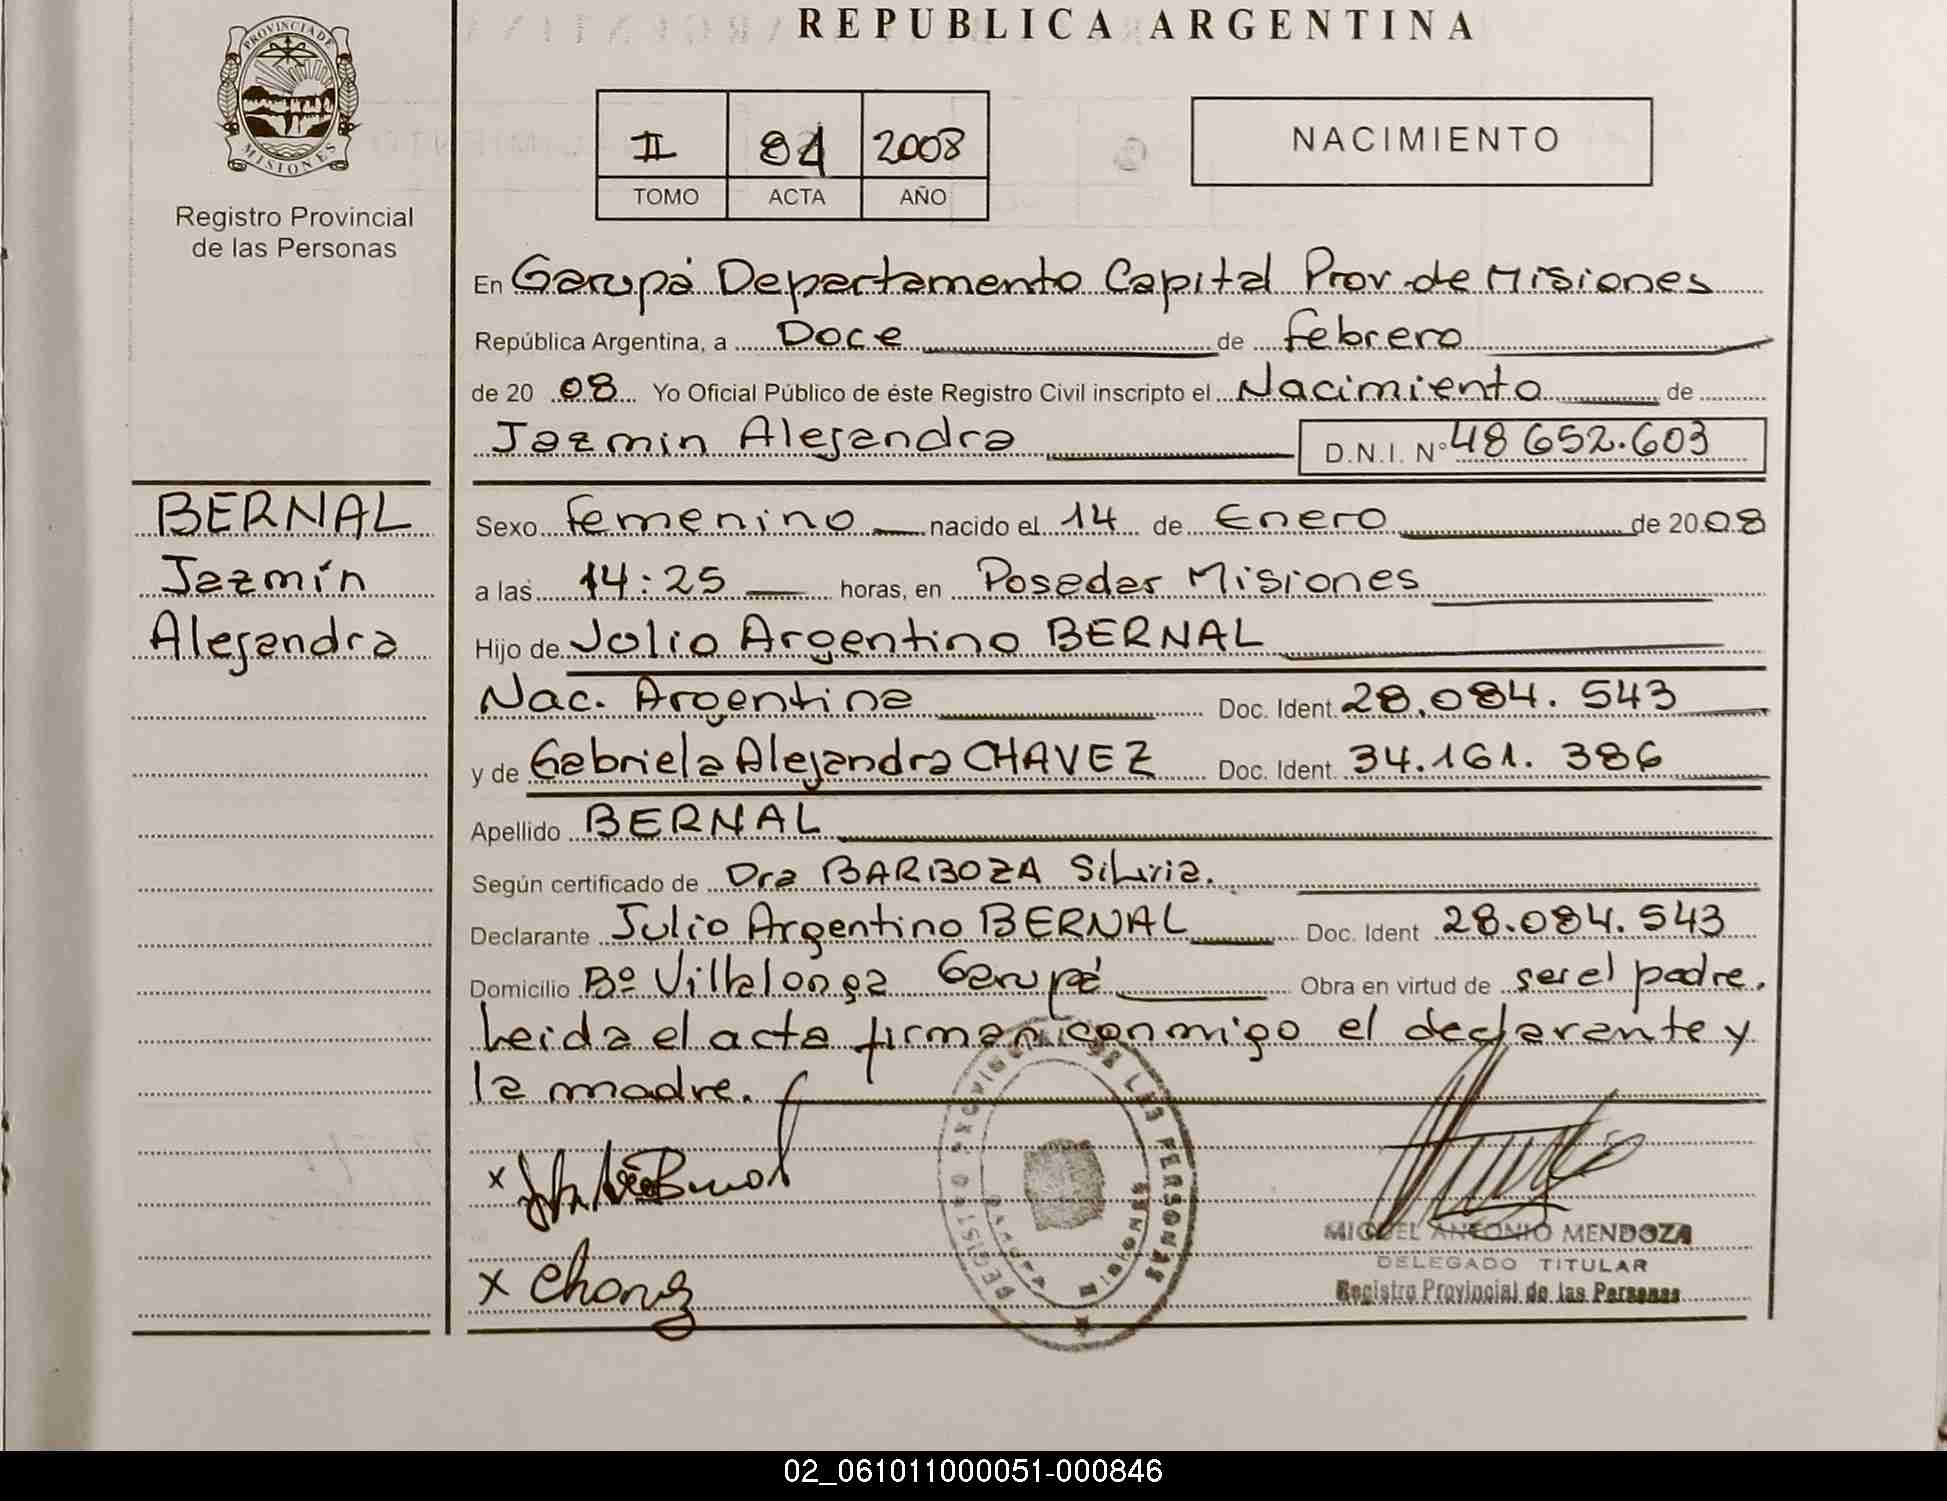 REPUBLICA ARGENTINA
PROVINCIA DE
MISIONES
Registro Provincial
de las Personas
II 84 2008
TOMO ACTA AÑO
NACIMIENTO
En Garupá Departamento Capital Prov. de Misiones
República Argentina, a Doce de febrero
de 2008 Yo Oficial Público de éste Registro Civil inscripto el Nacimiento de
Jazmin Alejandra D.N.I. Nº 48 652.603
BERNAL
Jazmín
Alejandra
Sexo femenino nacido el 14 de Enero de 2008
a las 14:25 horas, en Posadas Misiones
Hijo de Julio Argentino BERNAL
Nac. Argentina Doc. Ident. 28.084.543
y de Gabriela Alejandra CHAVEZ Doc. Ident. 34.161.386
Apellido BERNAL
Según certificado de Dra BARBOZA Silvia.
Declarante Julio Argentino BERNAL Doc. Ident 28.084.543
Domicilio Bº Villalonga Garupá Obra en virtud de ser el padre.
Leida el acta firman conmigo el declarante y
la madre.
x
x Chavez
REGISTRO PROVINCIAL DE LAS PERSONAS
GARUPA MISIONES
MIGUEL ANTONIO MENDOZA
DELEGADO TITULAR
Registro Provincial de las Personas
02_061011000051-000846